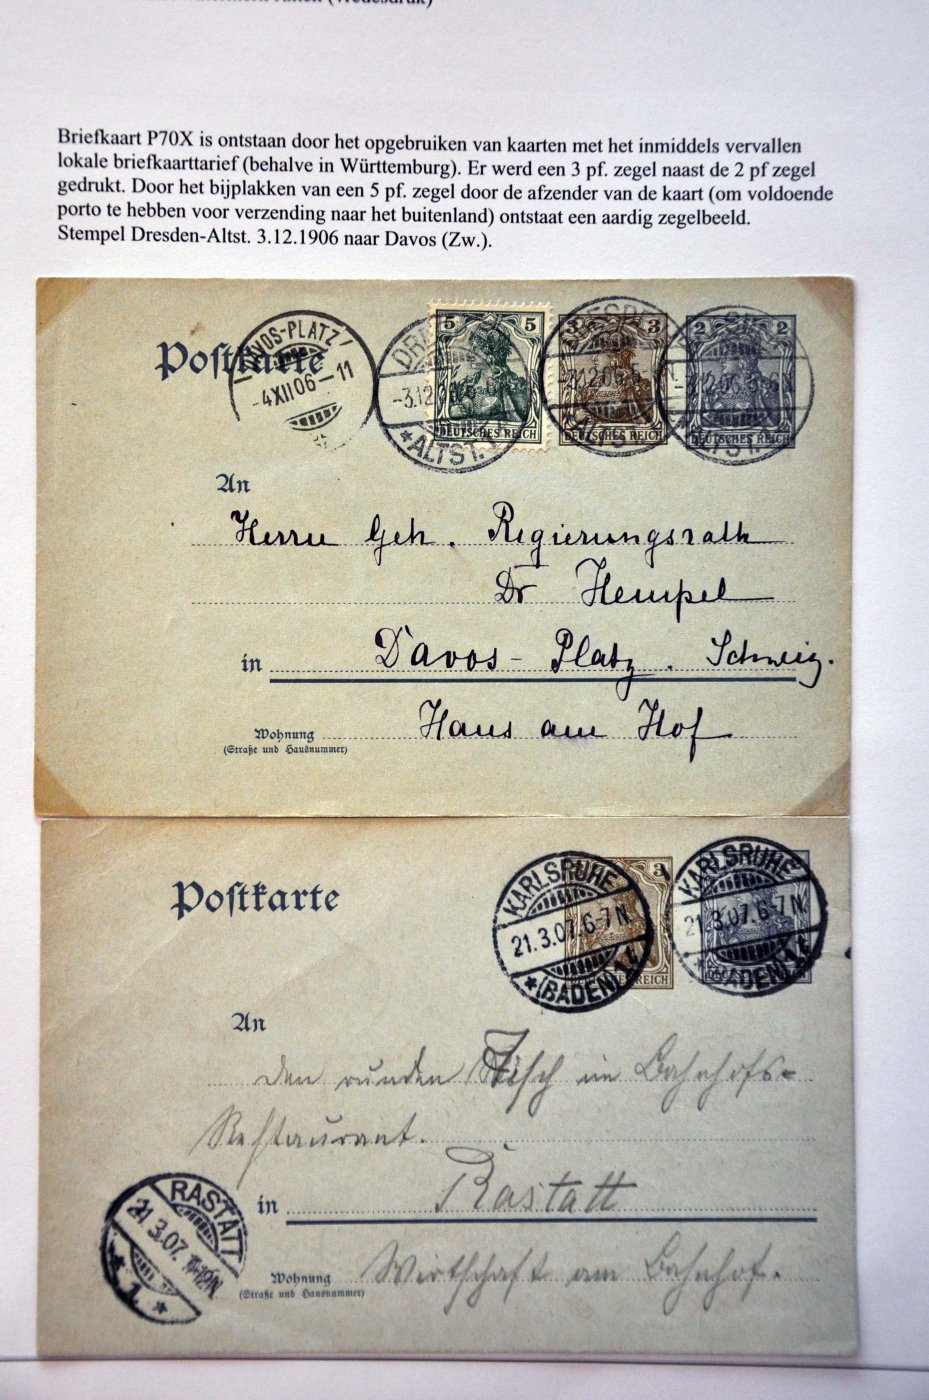 (Vredesdruk)
Briefkaart P70X is ontstaan door het opgebruiken van kaarten met het inmiddels vervallen
lokale briefkaarttarief (behalve in Württemburg). Er werd een 3 pf. zegel naast de 2 pf zegel
gedrukt. Door het bijplakken van een 5 pf. zegel door de afzender van de kaart (om voldoende
porto te hebben voor verzending naar het buitenland) ontstaat een aardig zegelbeeld.
Stempel Dresden-Altst. 3.12.1906 naar Davos (Zw.).
Postkarte
DAVOS-PLATZ
-4XII06-11
5 5
DEUTSCHES REICH
3 3
DEUTSCHES REICH
2 2
DEUTSCHES REICH
ALTST.
An
Herrn Geh. Regierungsrath
Dr Hempel
in Davos-Platz. Schweiz.
Wohnung Haus am Hof
(Straße und Hausnummer)
Postkarte
KARLSRUHE
21.3.07.6-7N.
(BADEN)
3
KARLSRUHE
21.3.07.6-7N.
(BADEN)
An
den runden Tisch im Bahnhofs-
Restaurant.
in Rastatt
RASTATT
21.3.07.
1.
Wohnung Wirthschaft am Bahnhof.
(Straße und Hausnummer)